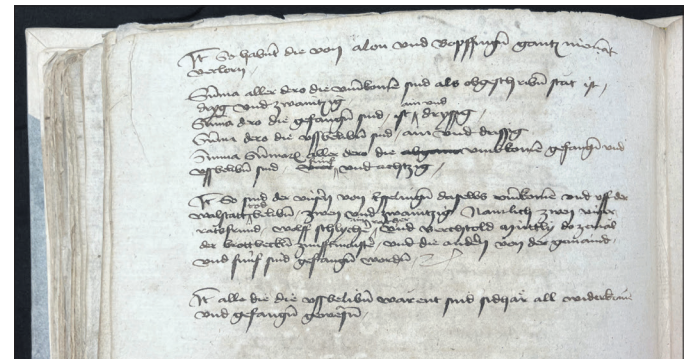 It So habnt die von alon und bopffingen gantz nieman
verlorn
Suma aller dero die umbkomen sind als obgeschribn stat ist
dryg und zwaintzig
Suma dero die gefangen sind, ist ain und dryssig
Suma dero die ussbelibn sind ain und drissig
Suma Sumarum aller dero die umbkomen gefangen und
ussbelibn sind fünf und achtzig
It So sind der unsern von Esselingen daselbs umbkomen und uff der
walstatt tod belibn zwen und zwaintzig Namlich zwen unser
ratzfrund, wolf schlycher und berchtold zu zemal
der brottbecken zunftmaister und die andern von der gemaind
und fünf sind gefangen worden
It alle die die ussbelibn warent sind sidhar all wider
und gefangen gewesen